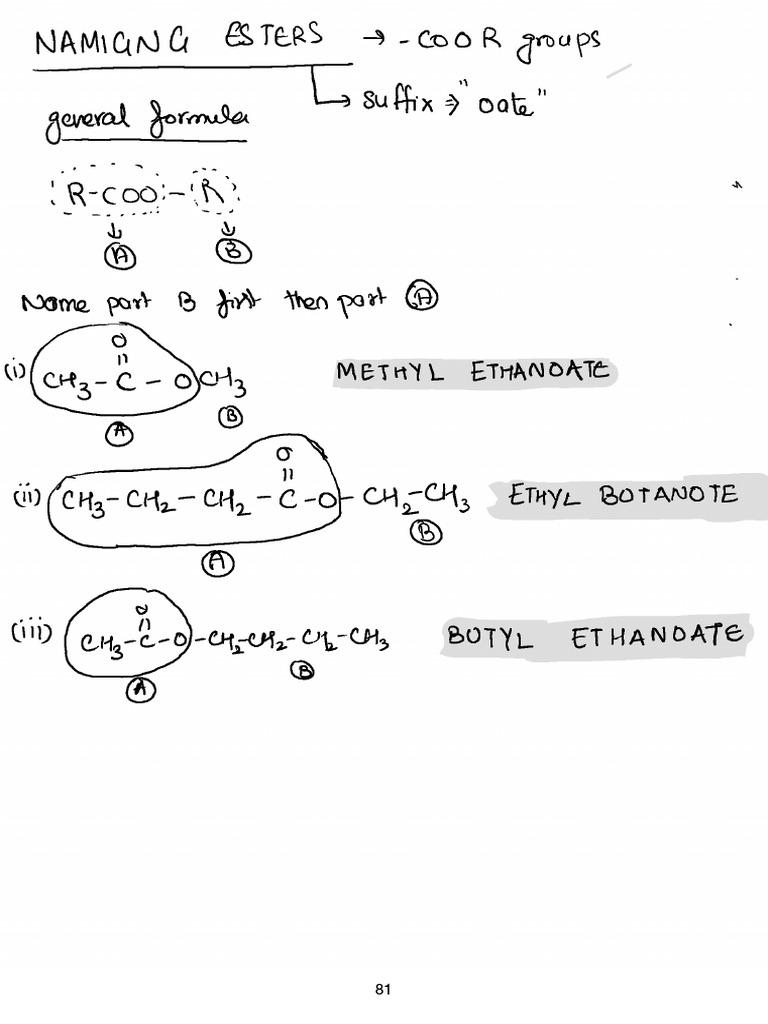 NAMIGNG ESTERS → -COOR groups
↳ suffix ⇒ "oate"
general formula
R-COO-R
A B
Name part B first then part A
O
(i) CH3-C-OCH3 METHYL ETHANOATE
A B
O
(ii) CH3-CH2-CH2-C-O-CH2-CH3 ETHYL BOTANOTE
A B
O
(iii) CH3-C-O-CH2-CH2-CH2-CH3 BOTYL ETHANOATE
A B
81